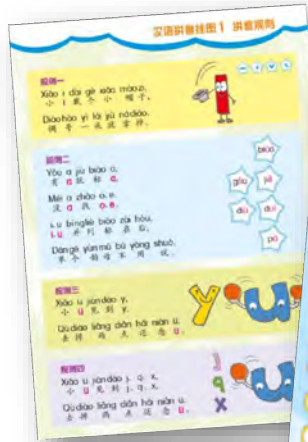 汉语拼音挂图1 拼音规则
规则一
Xiǎo i dài gè xiǎo màozi,
小 i 戴 个 小 帽 子,
Diàohào yì lái jiù nádiào.
调 号 一 来 就 拿 掉.
规则二
Yǒu a jiù biāo a,
有 a 就 标 a,
Méi a zhǎo o、e.
没 a 找 o、e.
i、u bìngliè biāo zài hòu,
i、u 并 列 标 在 后,
Dāngè yùnmǔ bú yòng shuō.
单 个 韵 母 不 用 说.
biāo
gǒu
jiě
diū
duī
pō
规则三
Xiǎo ü jiàndào y,
小 ü 见 到 y,
Qùdiào liǎng diǎn hái niàn ü.
去 掉 两 点 还 念 ü.
y ü
规则四
Xiǎo ü jiàndào j、q、x,
小 ü 见 到 j、q、x,
Qùdiào liǎng diǎn hái niàn ü.
去 掉 两 点 还 念 ü.
j
q
x
ü